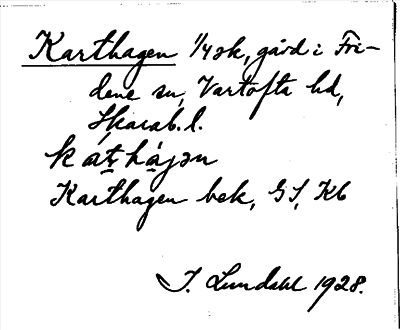 Karthagen 1/4 sk, gård i Fri-
dene sn, Vartofta hd,
Skarab. l.
kát hàjən
Karthagen bek, GS, Kb
I. Lundahl 1928.